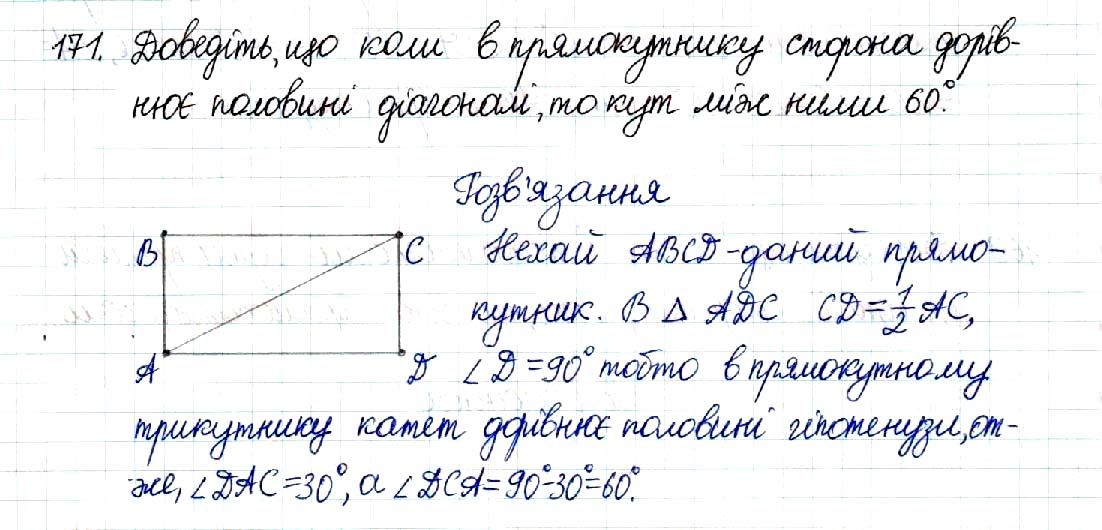 171. Доведіть, що коли в прямокутнику сторона дорів-
нює половині діагоналі, то кут між ними 60°.
Розв'язання
B
C
Нехай ABCD - даний прямо-
кутник. В △ ADC CD = 1/2 AC,
A
D
∠D = 90° тобто в прямокутному
трикутнику катет дорівнює половині гіпотенузи, от-
же, ∠DAC = 30°, а ∠DCA = 90°-30°=60°.